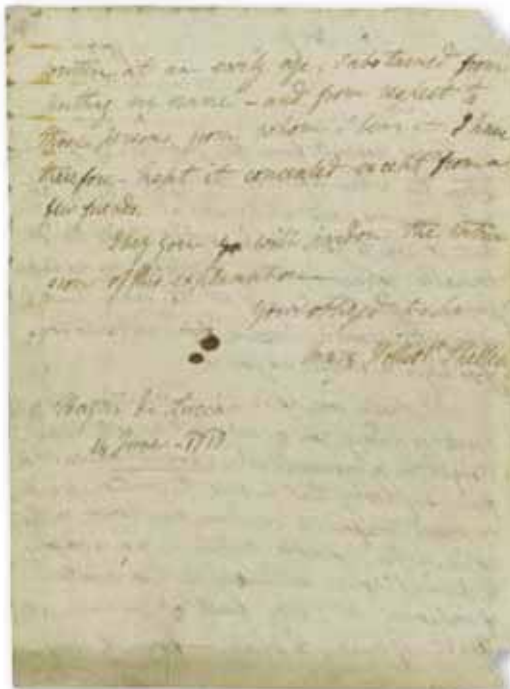 written at an early age. I abstained from
putting my name — and from respect to
those persons from whom I bear it. I have
therefore kept it concealed except from a
few friends.
I beg you will pardon the intru
sion of this explanation
Your obliged &c &c
Mary Wollst. Shelley
Bagni di Lucca
14 June — 1818